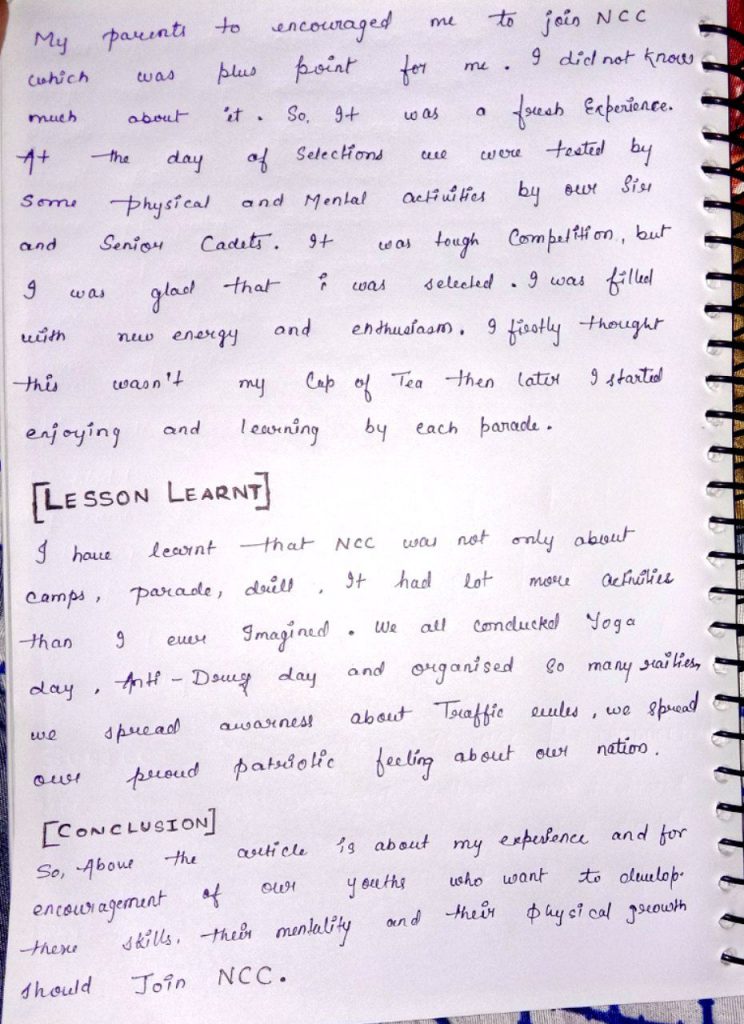 My parents to encouraged me to join NCC
which was plus point for me. I did not know
much about it. So, It was a fresh Experience.
At the day of Selections we were tested by
Some physical and Mental activities by our Sir
and Senior Cadets. It was tough Competition, but
I was glad that i was selected. I was filled
with new energy and enthusiasm. I firstly thought
this wasn't my Cup of Tea then later I started
enjoying and learning by each parade.
[LESSON LEARNT]
I have learnt that NCC was not only about
camps, parade, drill. It had lot more activities
than I ever Imagined. We all conducted Yoga
day, Anti-Drug day and organised so many railies,
we spread awarness about Traffic rules, we spread
our proud patriotic feeling about our nation.
[CONCLUSION]
So, Above the article is about my experience and for
encouragement of our youths who want to develop.
there skills. their mentality and their physical growth
should Join NCC.